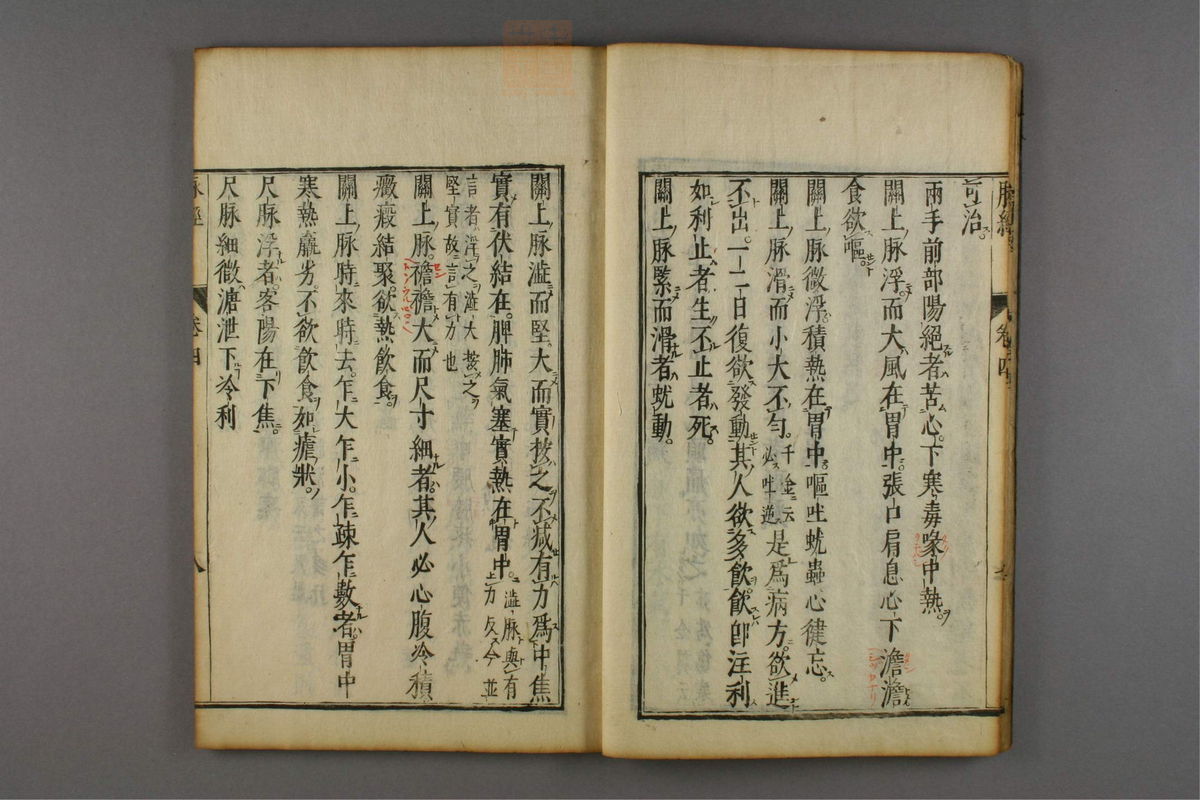 可治。
兩手前部陽絕者苦心下寒毒喙中熱。
關上脉浮而大風在胃中。張口肩息心下澹澹
食欲嘔。
關上脉微浮積熱在胃中。嘔吐蚘蟲心健忘。
關上脉滑而小大不勻。千金云必吐逆是爲病方。欲進
不出一二日復欲發動其人欲多飲飲卽注利
如利止者生不止者死。
關上脉緊而滑者蚘動。
脉經
卷四
七
關上脉濇而堅大而實按之不減有力爲中焦
實有伏結在。脾肺氣塞實熱在胃中。濇脉與有力反今並
言者浮之濇大按之堅實故言有力也
關上脉。襜襜大而尺寸細者。其人必心腹冷積
癥瘕結聚。欲熱飲食。
關上脉時來時去。乍大乍小。乍疎乍數者。胃中
寒熱羸劣。不欲飲食。如瘧狀。
尺脉浮者客陽在下焦。
尺脉細微溏泄下冷利
脉經
卷四
八